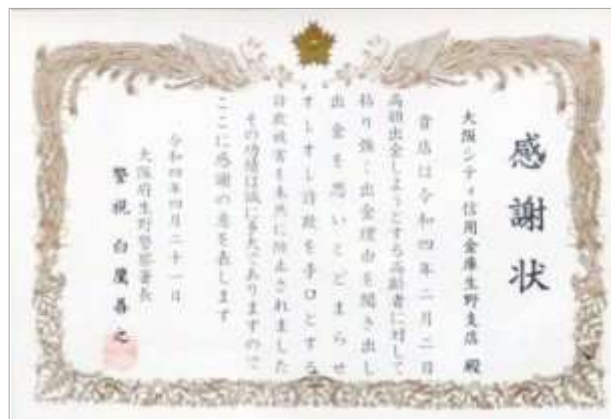 感謝状
大阪シティ信用金庫生野支店 殿
貴店は令和四年二月二日
高額出金しようとする高齢者に対して
粘り強く出金理由を聞き出し
出金を思いとどまらせ
オレオレ詐欺を手口とする
詐欺被害を未然に防止されました
その功績は誠に多大でありますので
ここに感謝の意を表します
令和四年四月二十一日
大阪府生野警察署長
警視 白鷹善之